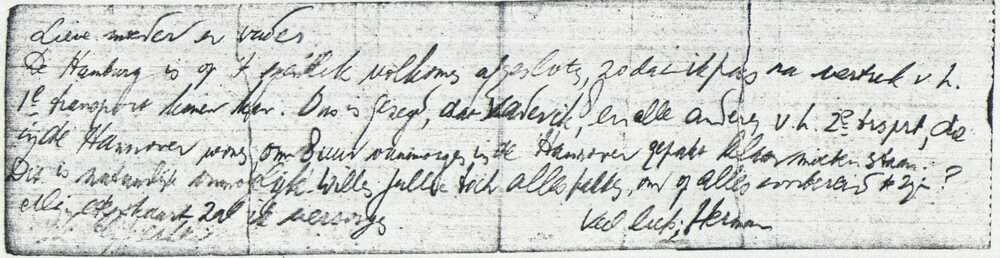 Lieve moeder en vader
De Hamburg is op 't ogenblik volkomen afgesloten, zodat ik pas na vertrek v.h.
1e transport kan. Ons is gezegd, dat Vader, ik, en alle anderen v.h. 2e trsprt, die
in de Hannover wonen, om 8 uur vanmorgen in de Hannover gepakt klaar moeten staan.
Dit is natuurlijk Willen jullie toch alles pakken, om op alles voorbereid te zijn?
zal ik verzorgen Veel liefs, Herman